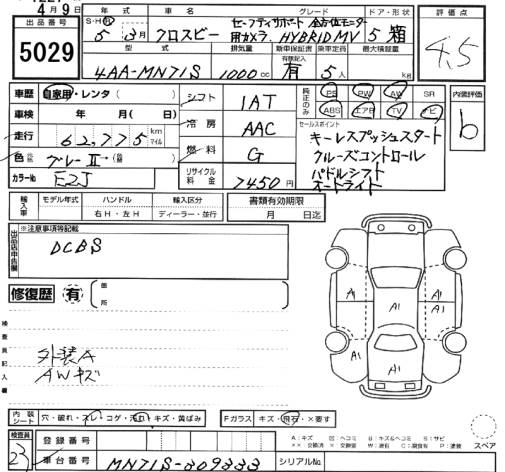 4月9日
出品番号
5029
年式 車名 グレード ドア・形状
S・H・R
5年3月 クロスビー
セーフティサポート 全方位モニター
用カメラ、HYBRID MV
5 箱
評価点
4.5
型式 排気量 新車保証書 乗車定員 最大積載量
有限記入
4AA-MN71S 1000cc 有 5人 kg
車歴 自家用・レンタ( )
車検 年 月( 日)
走行 62,775 km マイル
色 グレーⅡ
カラーNo E2J
シフト 1AT
冷房 AAC
燃料 G
リサイクル料金 7450円
純正のみ
PS PW AW SR
ABS エアB TV ナビ
内装評価
b
セールスポイント
キーレスプッシュスタート
クルーズコントロール
パドルシフト
オートライト
輸入車 モデル年式 ハンドル 輸入区分
右H・左H ディーラー・並行
書類有効期限
月 日迄
出品店申告欄
※注意事項等記載
DCBS
修復歴 有 箇所
検査員記入欄
外装A
AWキズ
A1
A1
A1
A1
A1
内装シート 穴・破れ・スレ・コゲ・汚れ・キズ・黄ばみ
Fガラス キズ・飛石・×要す
スペア
検査員
23
登録番号
車台番号 MN71S-309333
シリアルNo.